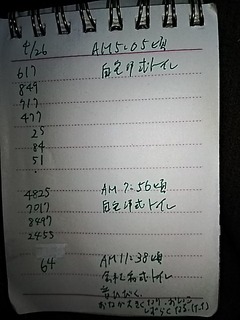 4/26 AM5:05頃
617 自宅洋式トイレ
849
717
477
25
84
51
4825 AM7:56頃
7017 自宅洋式トイレ
8497
2453
64 AM11:38頃
式トイレ